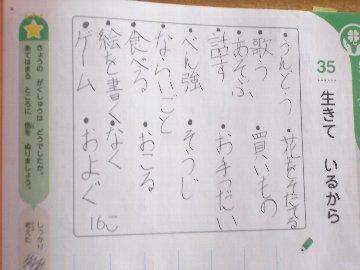 35 生きて いるから
・うんどう ・花をそだてる
・歌う ・買いもの
・あそぶ
・話す ・お手つだい
・べん強 ・そうじ
・ならいごと
・食べる ・おこる
・絵を書く ・なく
・ゲーム ・およぐ
16こ
きょうの がくしゅうは どうでしたか。
あてはまる ところに 色を ぬりましょう。
しっかり
考えた